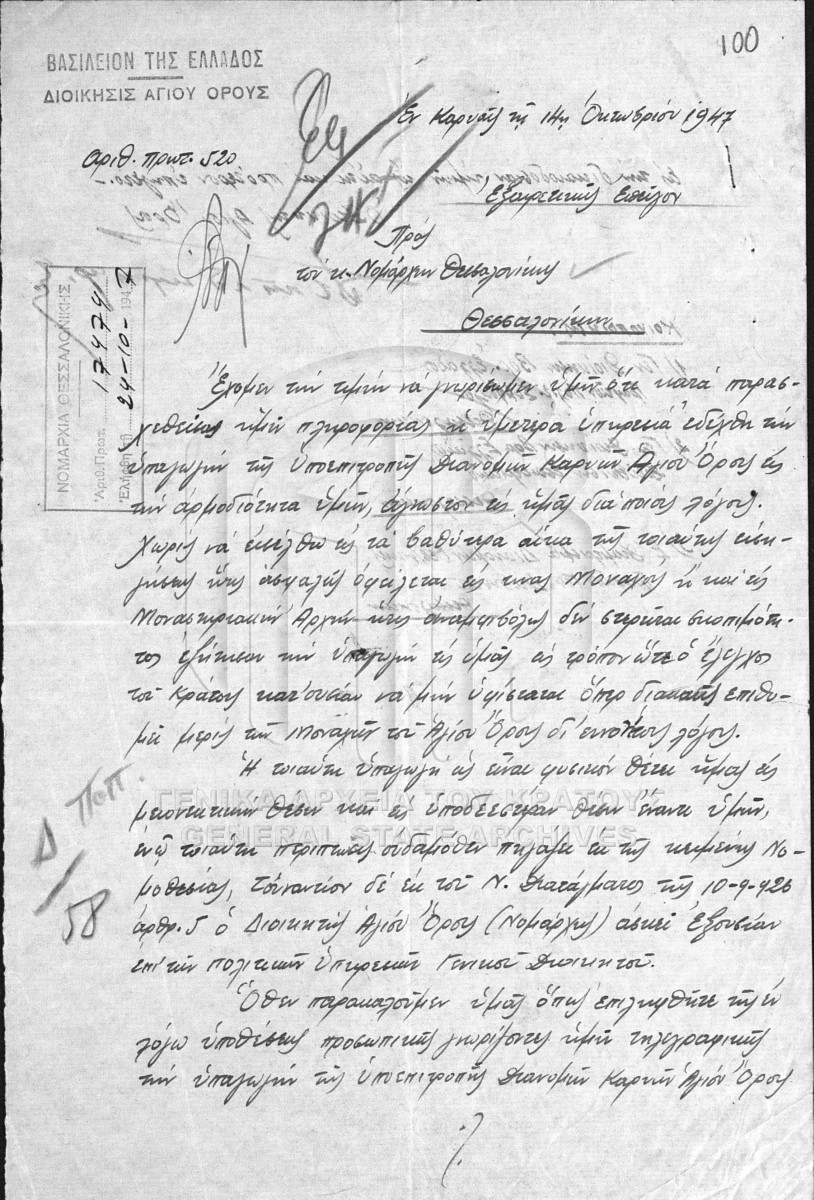 100
ΒΑΣΙΛΕΙΟΝ ΤΗΣ ΕΛΛΑΔΟΣ
ΔΙΟΙΚΗΣΙΣ ΑΓΙΟΥ ΟΡΟΥΣ
Ἐν Καρυαῖς τῇ 14ῃ Ὀκτωβρίου 1947
Αριθ. πρωτ. 520
Ἐξαιρετικῶς Ἐπεῖγον
Πρὸς
τὸν κ. Νομάρχην Θεσσαλονίκης
Θεσσαλονίκην
ΝΟΜΑΡΧΙΑ ΘΕΣΣΑΛΟΝΙΚΗΣ
Ἀριθ. Πρωτ. 17479
Ἐλήφθη τῇ 24-10-1947
Ἔχομεν τὴν τιμὴν νὰ γνωρίσωμεν ὑμῖν ὅτι κατὰ παρασ-
χεθείσας ἡμῖν πληροφορίας ἡ ὑμετέρα ὑπηρεσία ἐδέχθη τὴν
ὑπαγωγὴν τῆς Ὑποεπιτροπῆς Διανομῶν Καρυῶν Ἁγίου Ὄρους εἰς
τὴν ἁρμοδιότητα ὑμῶν, ἄγνωστον εἰς ἡμᾶς διὰ ποίους λόγους.
Χωρὶς νὰ εἰσέλθω εἰς τὰ βαθύτερα αἴτια τῆς τοιαύτης εἰση-
γήσεως ἥτις ἀσφαλῶς ὀφείλεται εἰς τινας Μοναχοὺς ἢ καὶ εἰς
Μοναστηριακὴν Ἀρχὴν ἥτις ἀναμφιβόλως δὲν στερεῖται σκοπιμότη-
τος ἐζήτησαν τὴν ὑπαγωγὴν εἰς ὑμᾶς εἰς τρόπον ὥστε ὁ ἔλεγχος
τοῦ Κράτους κατ' οὐσίαν νὰ μὴν ὑφίσταται ὅπερ διακαῶς ἐπιθυ-
μεῖ μερὶς τῶν Μοναχῶν τοῦ Ἁγίου Ὄρους δι' εὐνοήτους λόγους.
Ἡ τοιαύτη ὑπαγωγὴ ὡς εἶναι φυσικὸν θέτει ἡμᾶς εἰς
μειονεκτικὴν θέσιν καὶ εἰς ὑποδεεστέραν θέσιν ἔναντι ὑμῶν,
ἐνῷ τοιαύτη περίπτωσις οὐδαμόθεν πηγάζει ἐκ τῆς κειμένης Νο-
μοθεσίας, τοὐναντίον δὲ ἐκ τοῦ Ν. Διατάγματος τῆς 10-9-926
ἄρθρ. 5 ὁ Διοικητὴς Ἁγίου Ὄρους (Νομάρχης) ἀσκεῖ Ἐξουσίαν
ἐπὶ τῶν πολιτικῶν Ὑπηρεσιῶν Γενικοῦ Διοικητοῦ.
Ὅθεν παρακαλοῦμεν ὑμᾶς ὅπως ἐπιληφθῆτε τῆς ἐν
λόγῳ ὑποθέσεως προσωπικῶς γνωρίζοντες ἡμῖν τηλεγραφικῶς
τὴν ὑπαγωγὴν τῆς Ὑποεπιτροπῆς Διανομῶν Καρυῶν Ἁγίου Ὄρους
Δ
58
ΓΕΝΙΚΑ ΑΡΧΕΙΑ ΤΟΥ ΚΡΑΤΟΥΣ
GENERAL STATE ARCHIVES